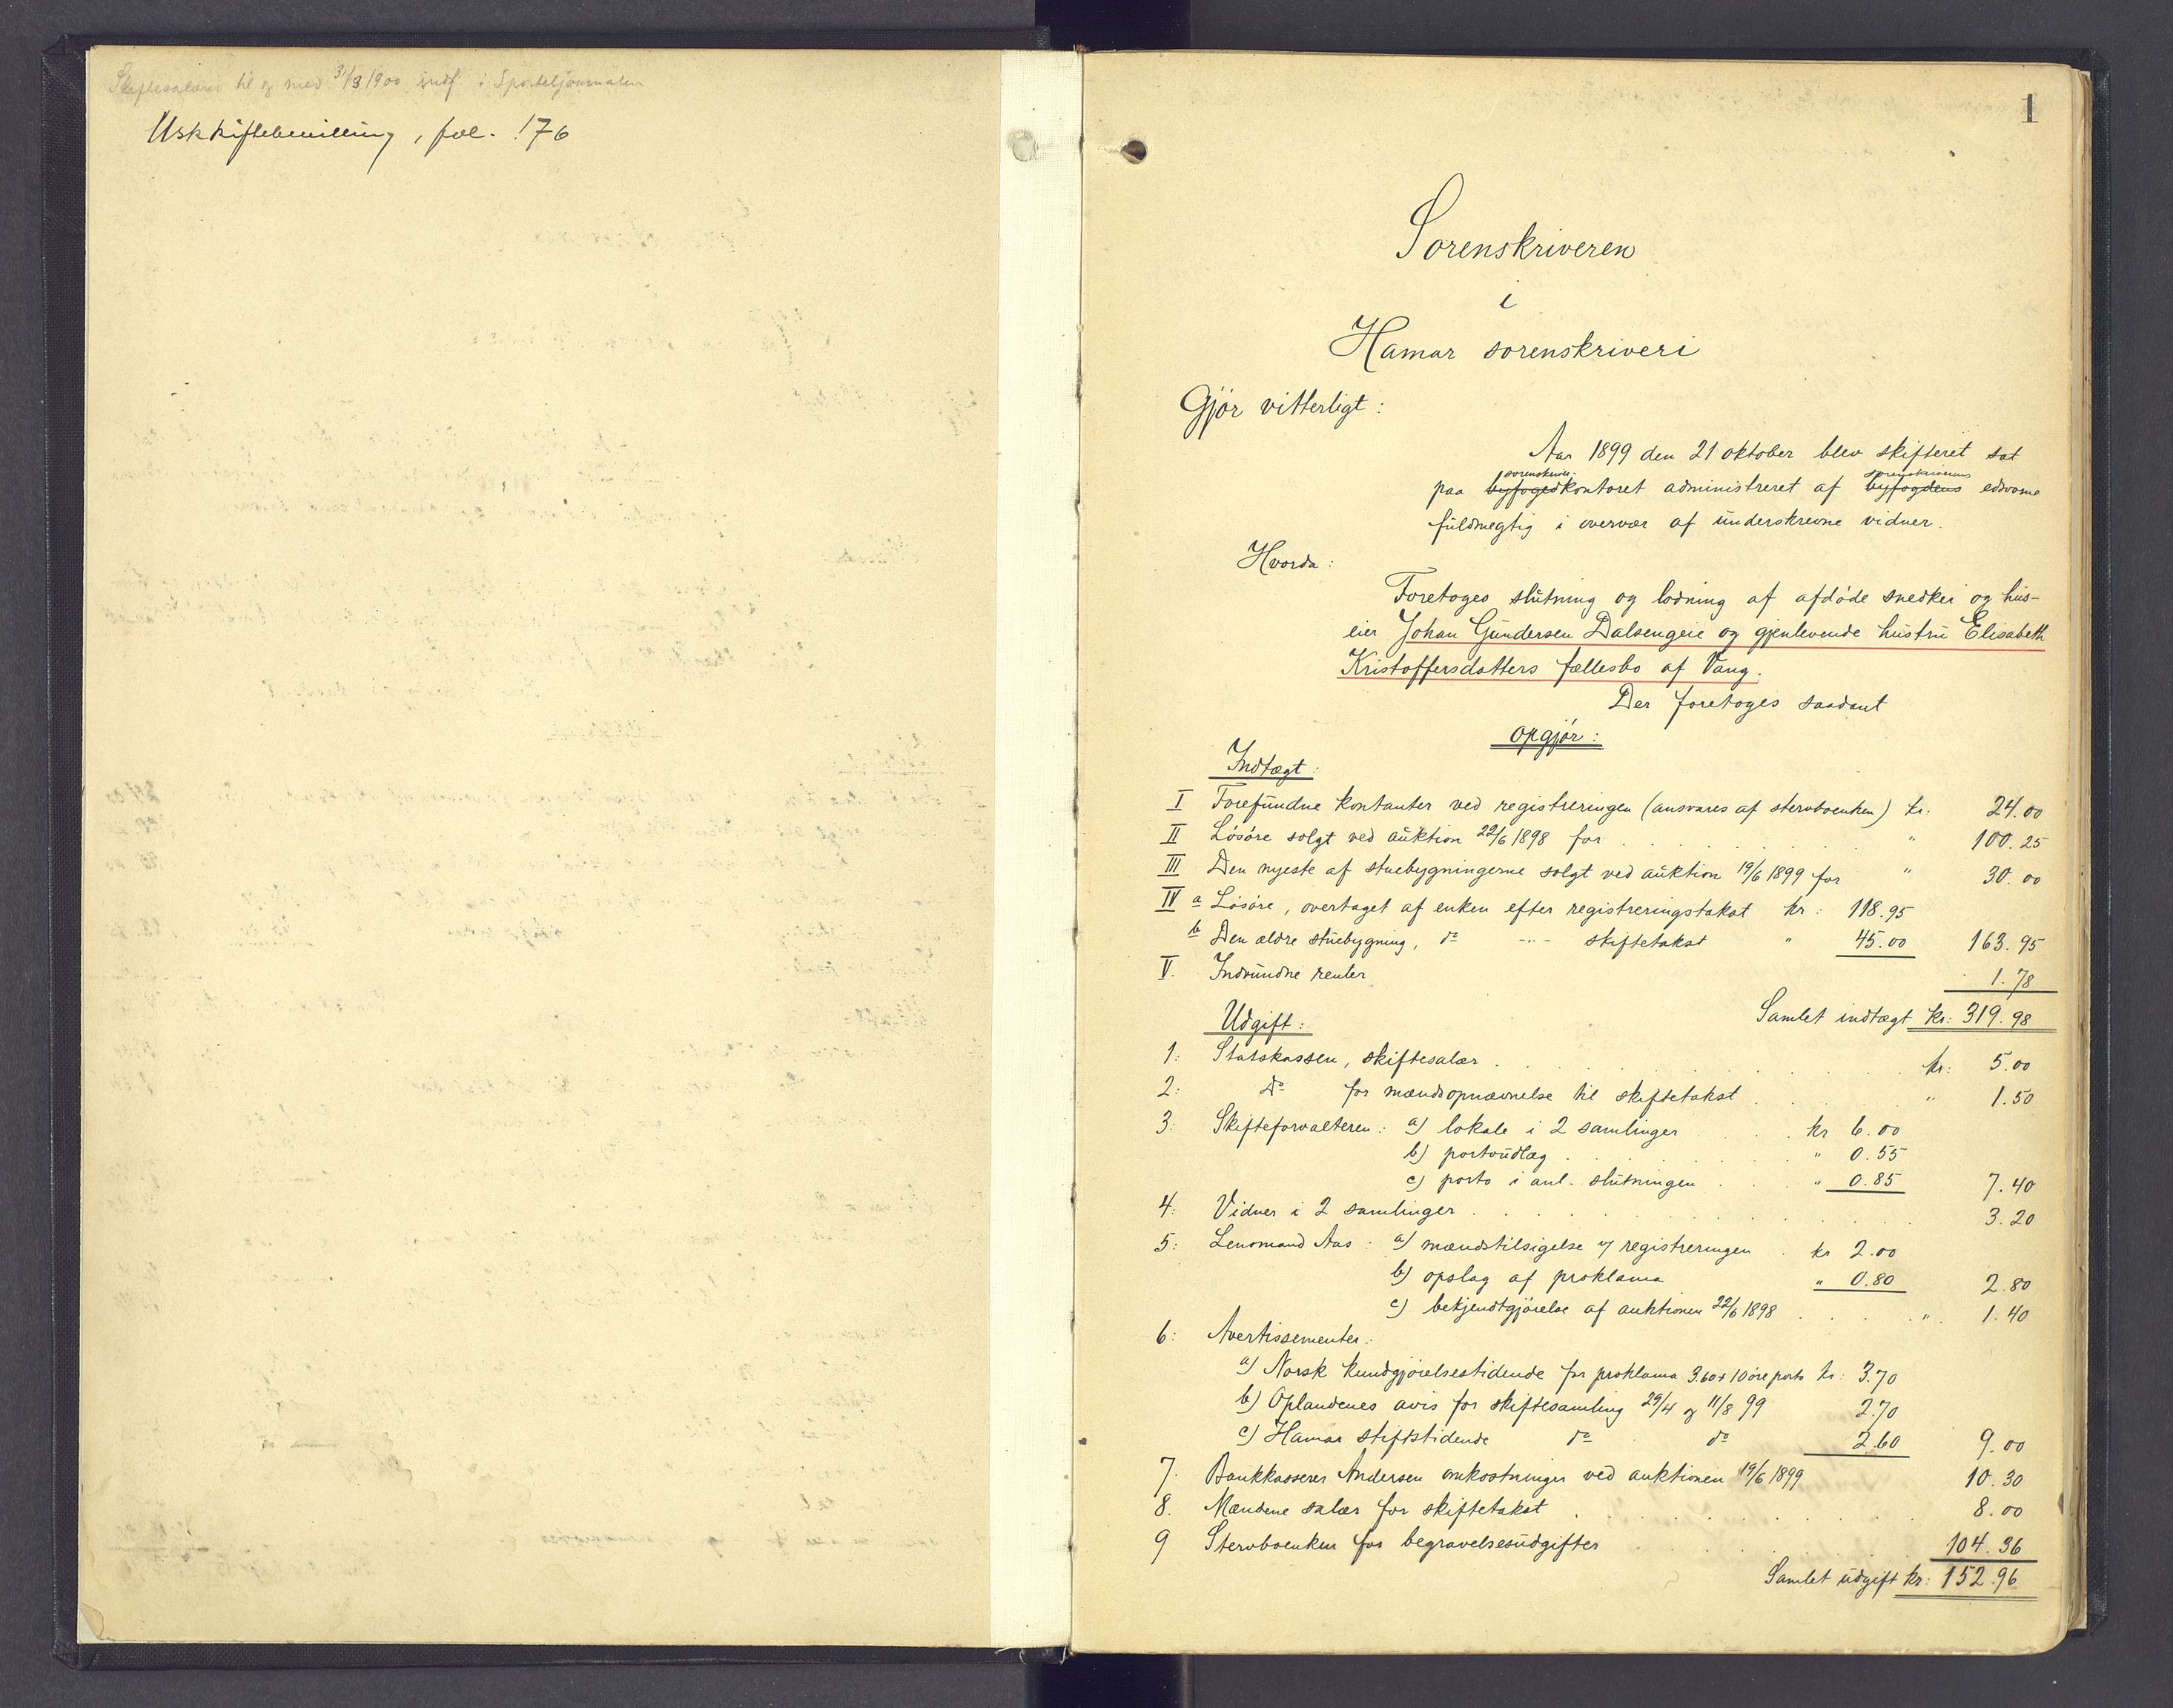 Skiftesalærer til og med 31/3 1900 indf i Sporteljournalen
Uskiftebevilling, fol. 176
1
Sorenskriveren
i
Hamar sorenskriveri
Gjør vitterligt:
Aar 1899 den 21 oktober blev skifteret sat
sorenskriver sorenskriverens
paa byfogedkontoret administreret af byfogdens edsvorne
fuldmegtig i overvær af underskrevne vidner.
Hvorda:
Foretoges slutning og lodning af afdøde snedker og hus-
eier Johan Gundersen Dalsengeie og gjenlevende hustru Elisabeth
Kristoffersdatters fællesbo af Vang.
Der foretoges saadant
opgjør:
Indtægt:
I Forefundne kontanter ved registreringen (ansvares af stervboenken) kr. 24.00
II Løsøre solgt ved auktion 22/6 1898 for " 100.25
III Den nyeste af stuebygningerne solgt ved auktion 19/6 1899 for " 30.00
IV a Løsøre, overtaget af enken efter registreringstakst kr: 118.95
b Den ældre stuebygning, do -"- skiftetakst " 45.00 163.95
V. Indvundne renter 1.78
Samlet indtægt kr: 319.98
Udgift:
1: Statskassen, skiftesalær kr: 5.00
2: Do for mændsopnævnelse til skiftetakst " 1.50
3: Skifteforvalteren: a) lokale i 2 samlinger kr 6.00
b) portoudlæg " 0.55
c) porto i anl. slutningen " 0.85 7.40
4: Vidner i 2 samlinger 3.20
5: Lensmand Aas: a) mændstilsigelse v/ registreringen kr 2.00
b) opslag af proklama " 0.80 2.80
c) bekjendtgjørelse af auktionen 22/6 1898 " 1.40
6: Avertissementer:
a) Norsk kundgjørelsestidende for proklama 3.60 + 10 øre porto kr: 3.70
b) Oplandenes avis for skiftesamling 29/4 og 11/8 99 2.70
c) Hamar stiftstidende do do 2.60 9.00
7. Bankkasserer Andersen omkostninger ved auktionen 19/6 1899 10.30
8. Mændene salær for skiftetakst 8.00
9 Stervboenken for begravelsesudgifter 104.36
Samlet udgift kr: 152.96